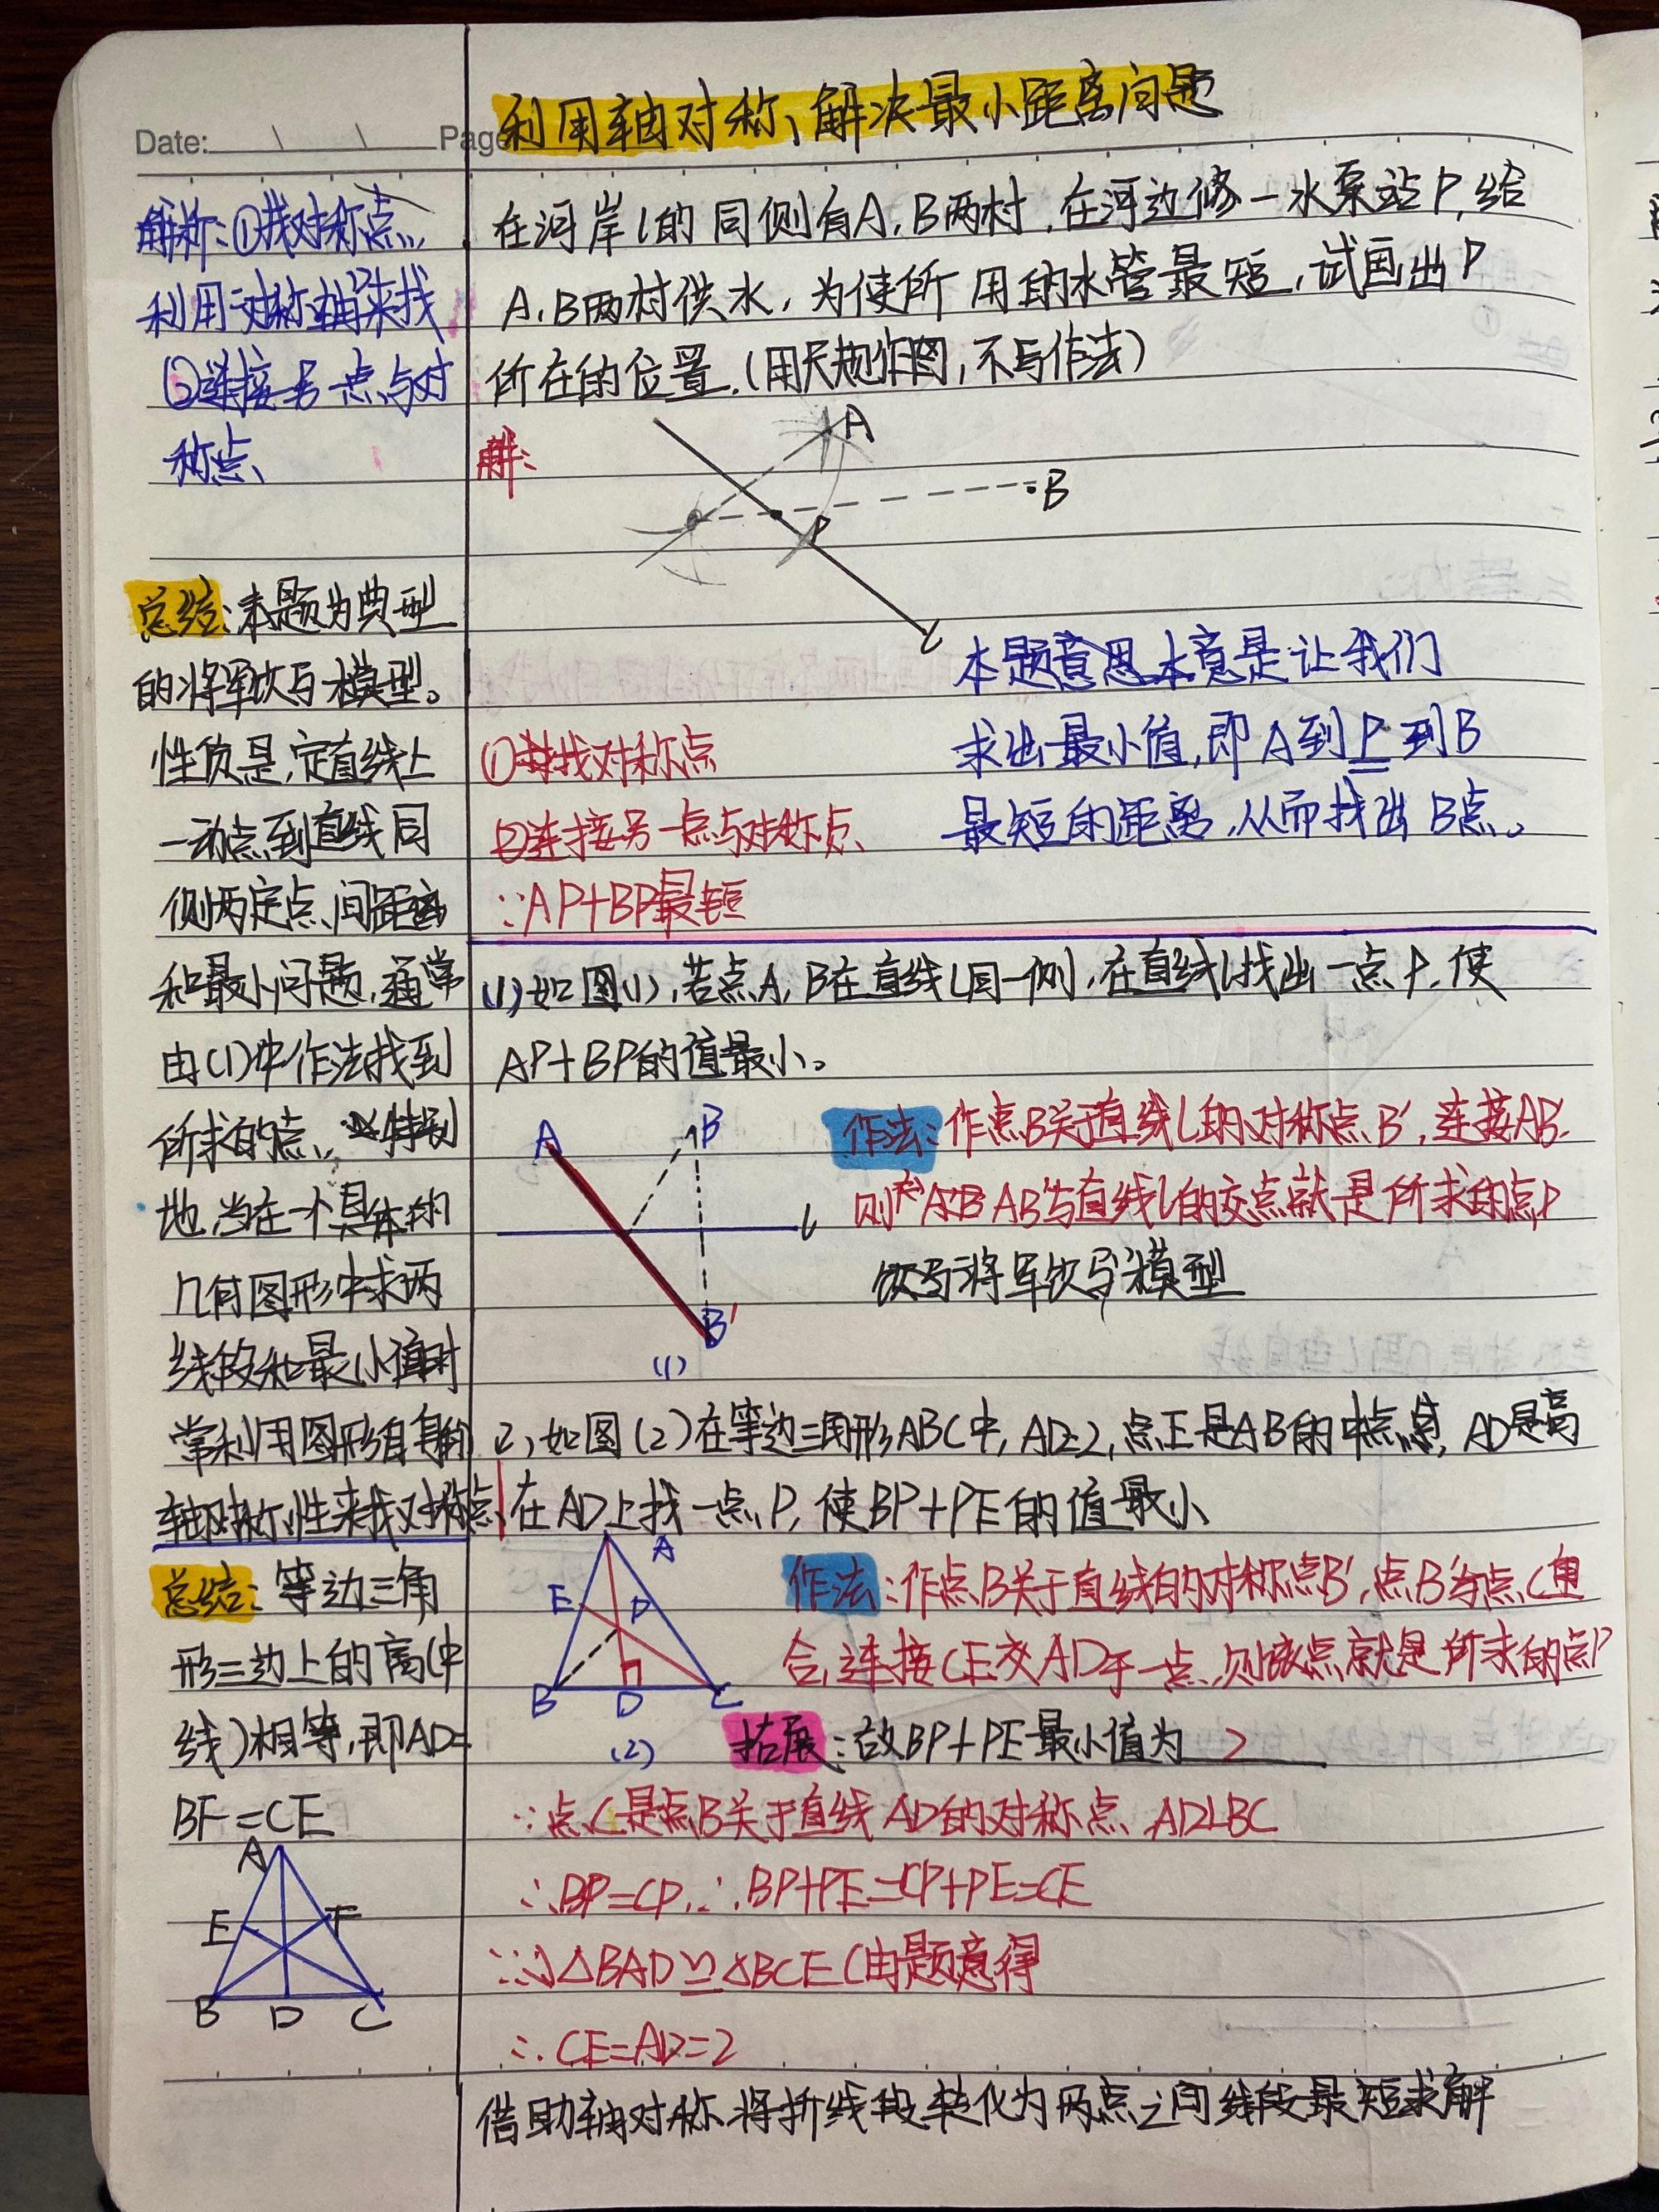 利用轴对称、解决最小距离问题
Date: Page
解析:①找对称点,
利用对称轴来找
②连接另一点与对
称点、
总结:本题为典型
的将军饮马模型。
性质是,定直线上
一动点到直线同
侧两定点、间距离
和最小问题,通常
由(1)中作法找到
所求的点、特别
地,当在一个具体的
几何图形中求两
线段和最小值时
常利用图形自身的
轴对称性来找对称点
总结:等边三角
形三边上的高(中
线)相等,即AD=
BF=CE
A
E F
B D C
在河岸l的同侧有A、B两村,在河边修一水泵站P,给
A、B两村供水,为使所用的水管最短,试画出P
所在的位置.(用尺规作图,不写作法)
解:
A
B
P
l
本题意思本意是让我们
求出最小值,即A到P到B
最短的距离,从而找出B点。
①找对称点
②连接另一点与对称点、
∵AP+BP最短
(1)如图(1),若点A,B在直线L同一侧,在直线l找出一点P,使
AP+BP的值最小。
A B
l
B'
(1)
作法:作点B关于直线l的对称点B',连接AB'
则 AB'与直线l的交点就是所求的点P
将军饮马模型
2,如图(2)在等边三角形ABC中,AD=2,点E是AB的中点,AD是高
在AD上找一点P,使BP+PE的值最小
A
E P
B D C
(2)
作法:作点B关于直线的对称点B',点B'与点C重
合,连接CE交AD于一点,则该点就是所求的点P
拓展:故BP+PE最小值为 2
∵点C是点B关于直线AD的对称点、AD⊥BC
∴BP=CP,∴BP+PE=CP+PE=CE
△BAD≌△BCE(由题意得
∴CE=AD=2
借助轴对称,将折线段转化为两点之间线段最短求解